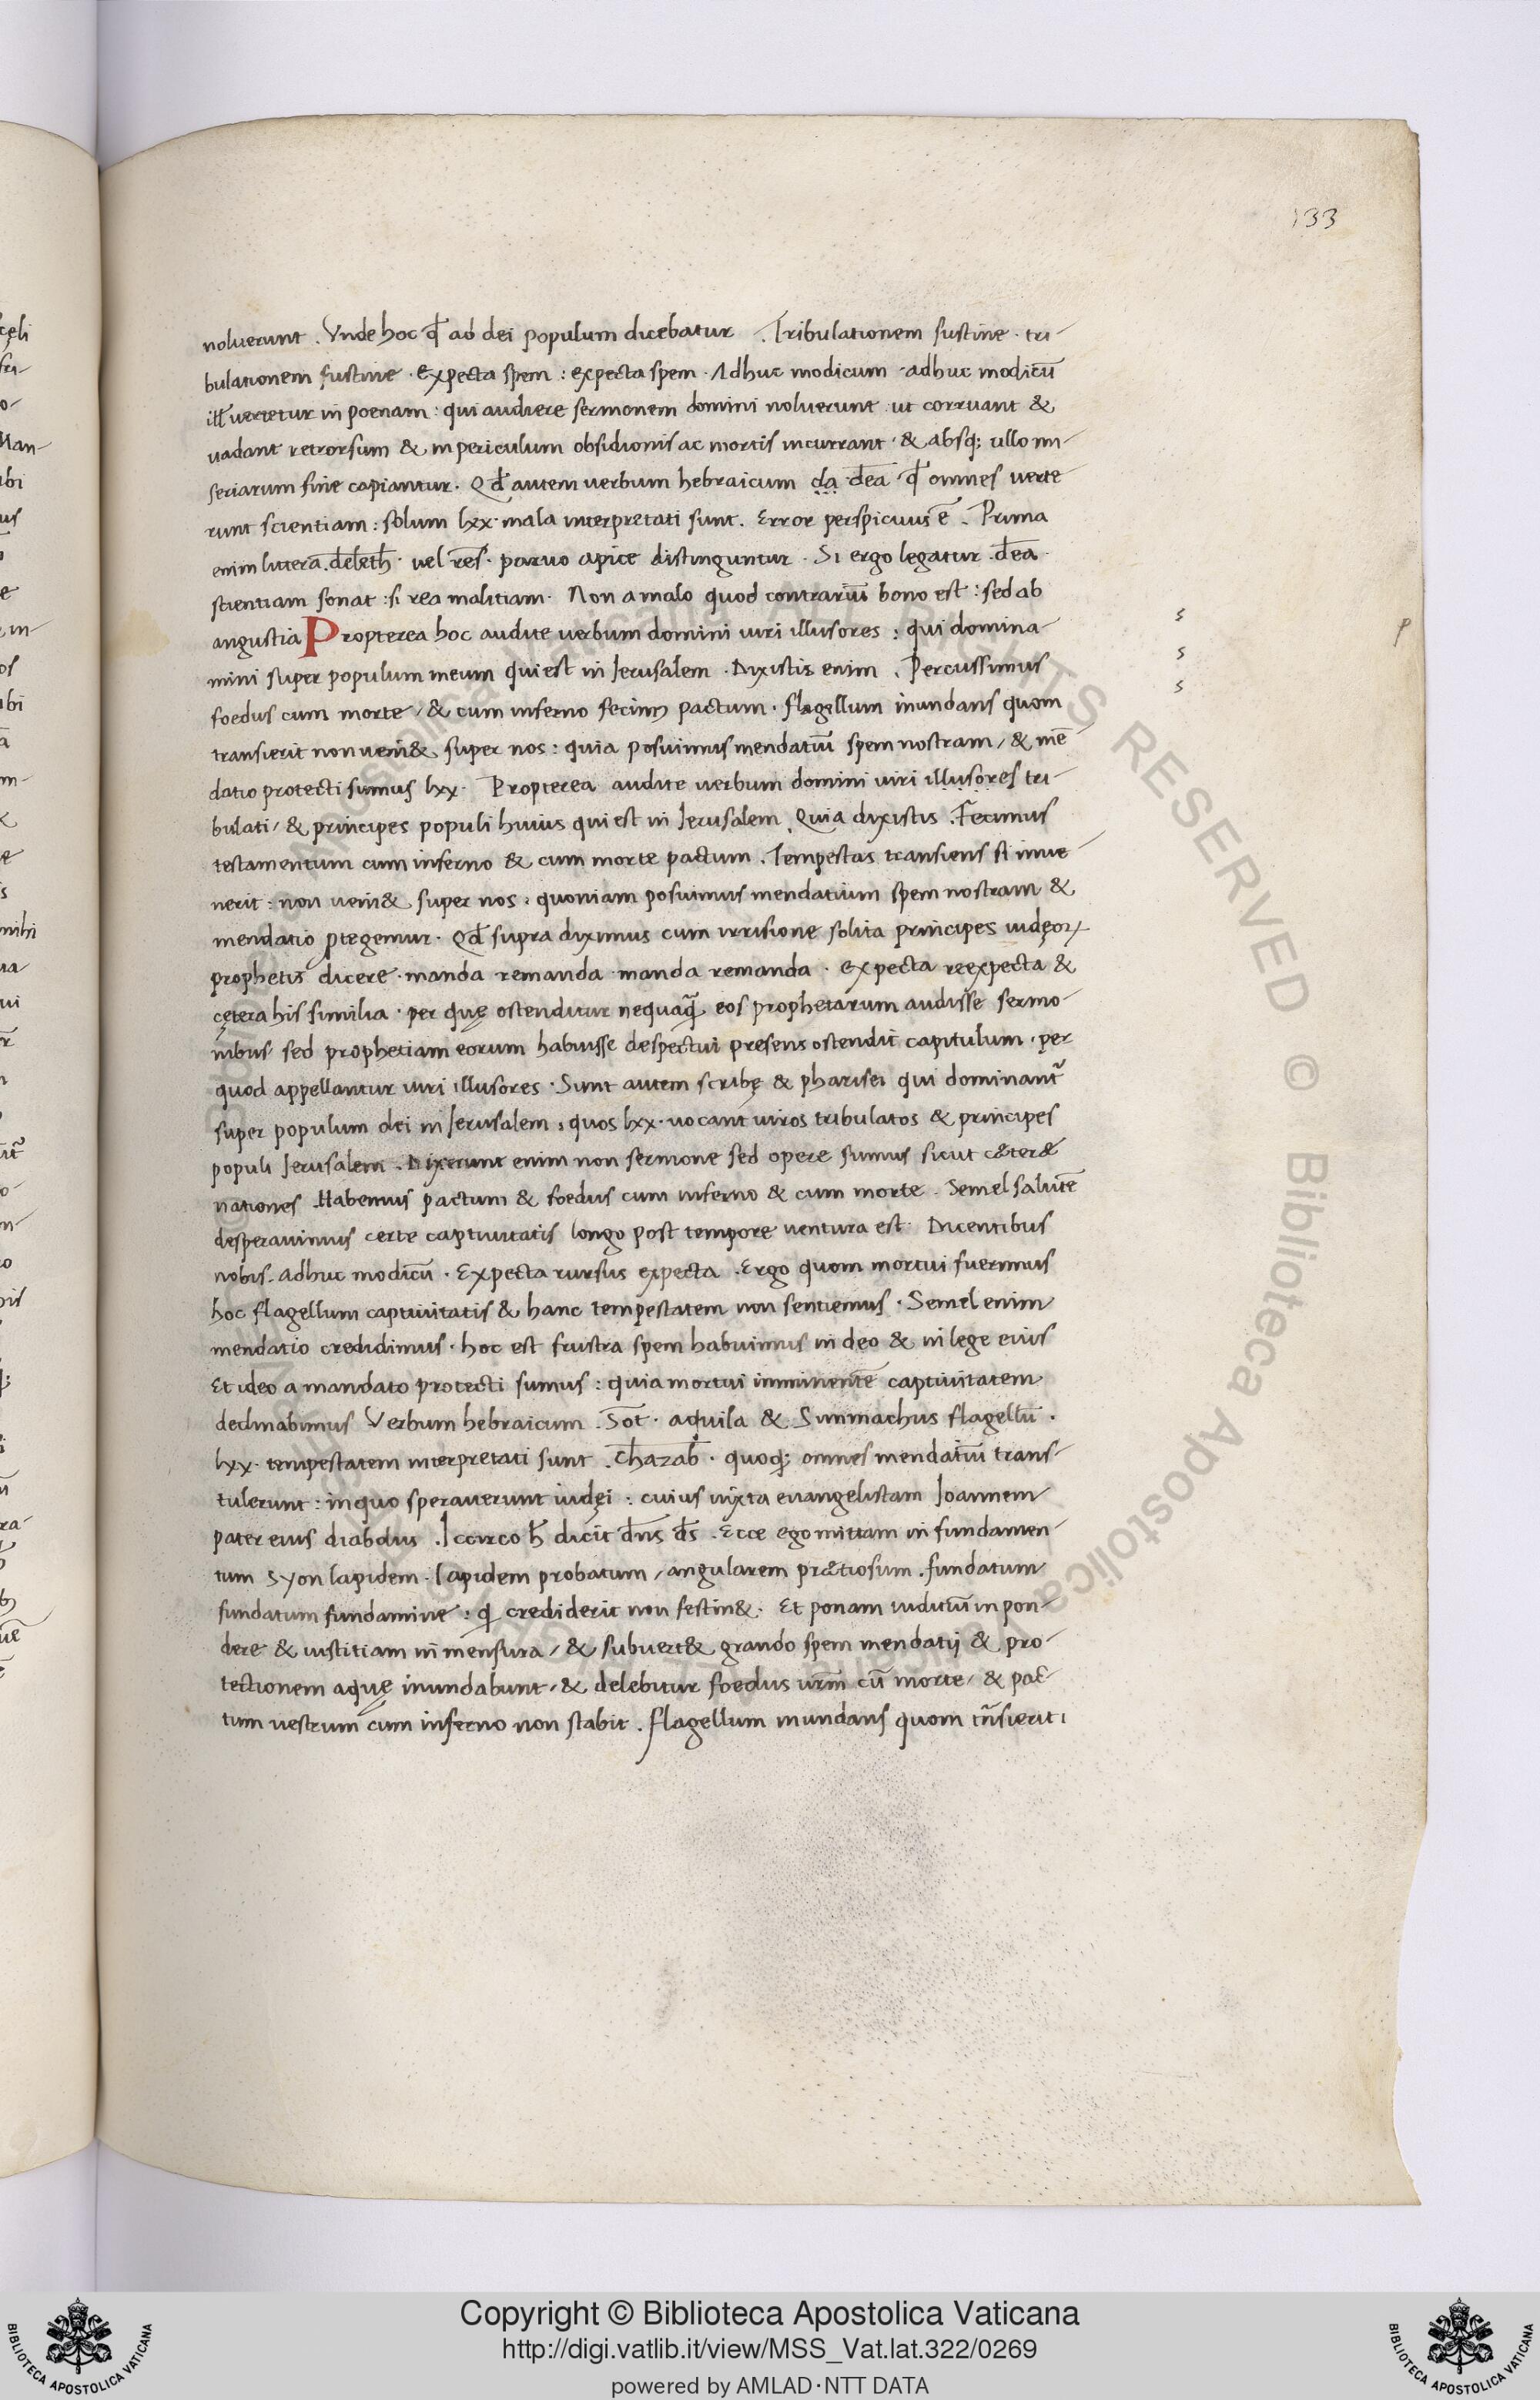 133
noluerunt . Vnde hoc qđ ad dei populum dicebatur . Tribulationem sustine · tri-
bulationem sustine · Expecta spem : expecta spem · Adhuc modicum · adhuc modicū
illđ uertetur in poenam : qui audiere sermonem domini noluerunt ut corruant &
uadant retrorsum & in periculum obsidionis ac mortis incurrant · & absq; ullo mi-
seriarum fine capiantur . Qđ autem uerbum hebraicum da dea qđ omnes uerte
runt scientiam : solum lxx · mala interpretati sunt . Error perspicuus ē . Prima
enim littera . deleth · uel res · paruo apice distinguntur . Si ergo legatur . dea ·
scientiam sonat : si rea malitiam · Non a malo quod contrariū bono est : sed ab
angustia Propterea hoc audite uerbum domini uiri illusores : qui domina-
mini super populum meum qui est in Jerusalem . Dixistis enim . Percussimus
foedus cum morte / & cum inferno fecim9 pactum · flagellum inundans quom
transierit non ueni& super nos : quia posuimus mendatiū spem nostram / & mē
datio protecti sumus lxx · Propterea audite uerbum domini uiri illusores tri-
bulati / & principes populi huius qui est in Jerusalem . Quia dixistis . Fecimus
testamentum cum inferno & cum morte pactum . Tempestas transiens si inue-
nerit : non ueni& super nos : quoniam posuimus mendatium spem nostram &
mendatio ꝓtegemur · Qđ supra diximus cum irrisione solita principes iudęoꝝ
prophetis dicere · manda remanda manda remanda · expecta reexpecta &
cętera his similia · per quę ostenditur nequaꝗ̃ eos prophetarum audisse sermo-
nibus sed prophetiam eorum habuisse despectui presens ostendit capitulum · per
quod appellantur uiri illusores · Sunt autem scribę & pharisei qui dominant᷑
super populum dei in Jerusalem : quos lxx · uocant uiros tribulatos & principes
populi Jerusalem . Dixerunt enim non sermone sed opere sumus sicut cæteræ
nationes . Habemus pactum & foedus cum inferno & cum morte . Semel salutē
desperauimus certe captiuitatis longo post tempore uentura est · Dicentibus
nobis . adhuc modicū · Expecta rursus expecta . Ergo quom mortui fuerimus
hoc flagellum captiuitatis & hanc tempestatem non sentiemus · Semel enim
mendatio credidimus · hoc est frustra spem habuimus in deo & in lege eius
Et ideo a mandato protecti sumus : quia mortui imminentē captiuitatem
declinabimus Verbum hebraicum . Sot · aquila & Simmachus flagellū .
lxx · tempestatem interpretati sunt . Chazab · quoq; omnes mendatiū trans-
tulerunt : in quo sperauerunt iudęi : cuius iuxta euangelistam Joannem
pater eius diabolus . Iccirco h̄ dicit dñs ds̄ . Ecce ego mittam in fundamen-
tum syon lapidem . lapidem probatum / angularem prætiosum . fundatum
fundatum fundamine : ꝗ crediderit non festin& · Et ponam iuditiū in pon-
dere & iustitiam in mensura / & subuert& grando spem mendatij & pro-
tectionem aquę inundabunt / & delebitur foedus urm̄ cū morte / & pac-
tum uestrum cum inferno non stabit . flagellum inundans quom trãsierit
s
s
s
p
Copyright © Biblioteca Apostolica Vaticana
http://digi.vatlib.it/view/MSS_Vat.lat.322/0269
powered by AMLAD·NTT DATA
BIBLIOTECA APOSTOLICA VATICANA
BIBLIOTECA APOSTOLICA VATICANA